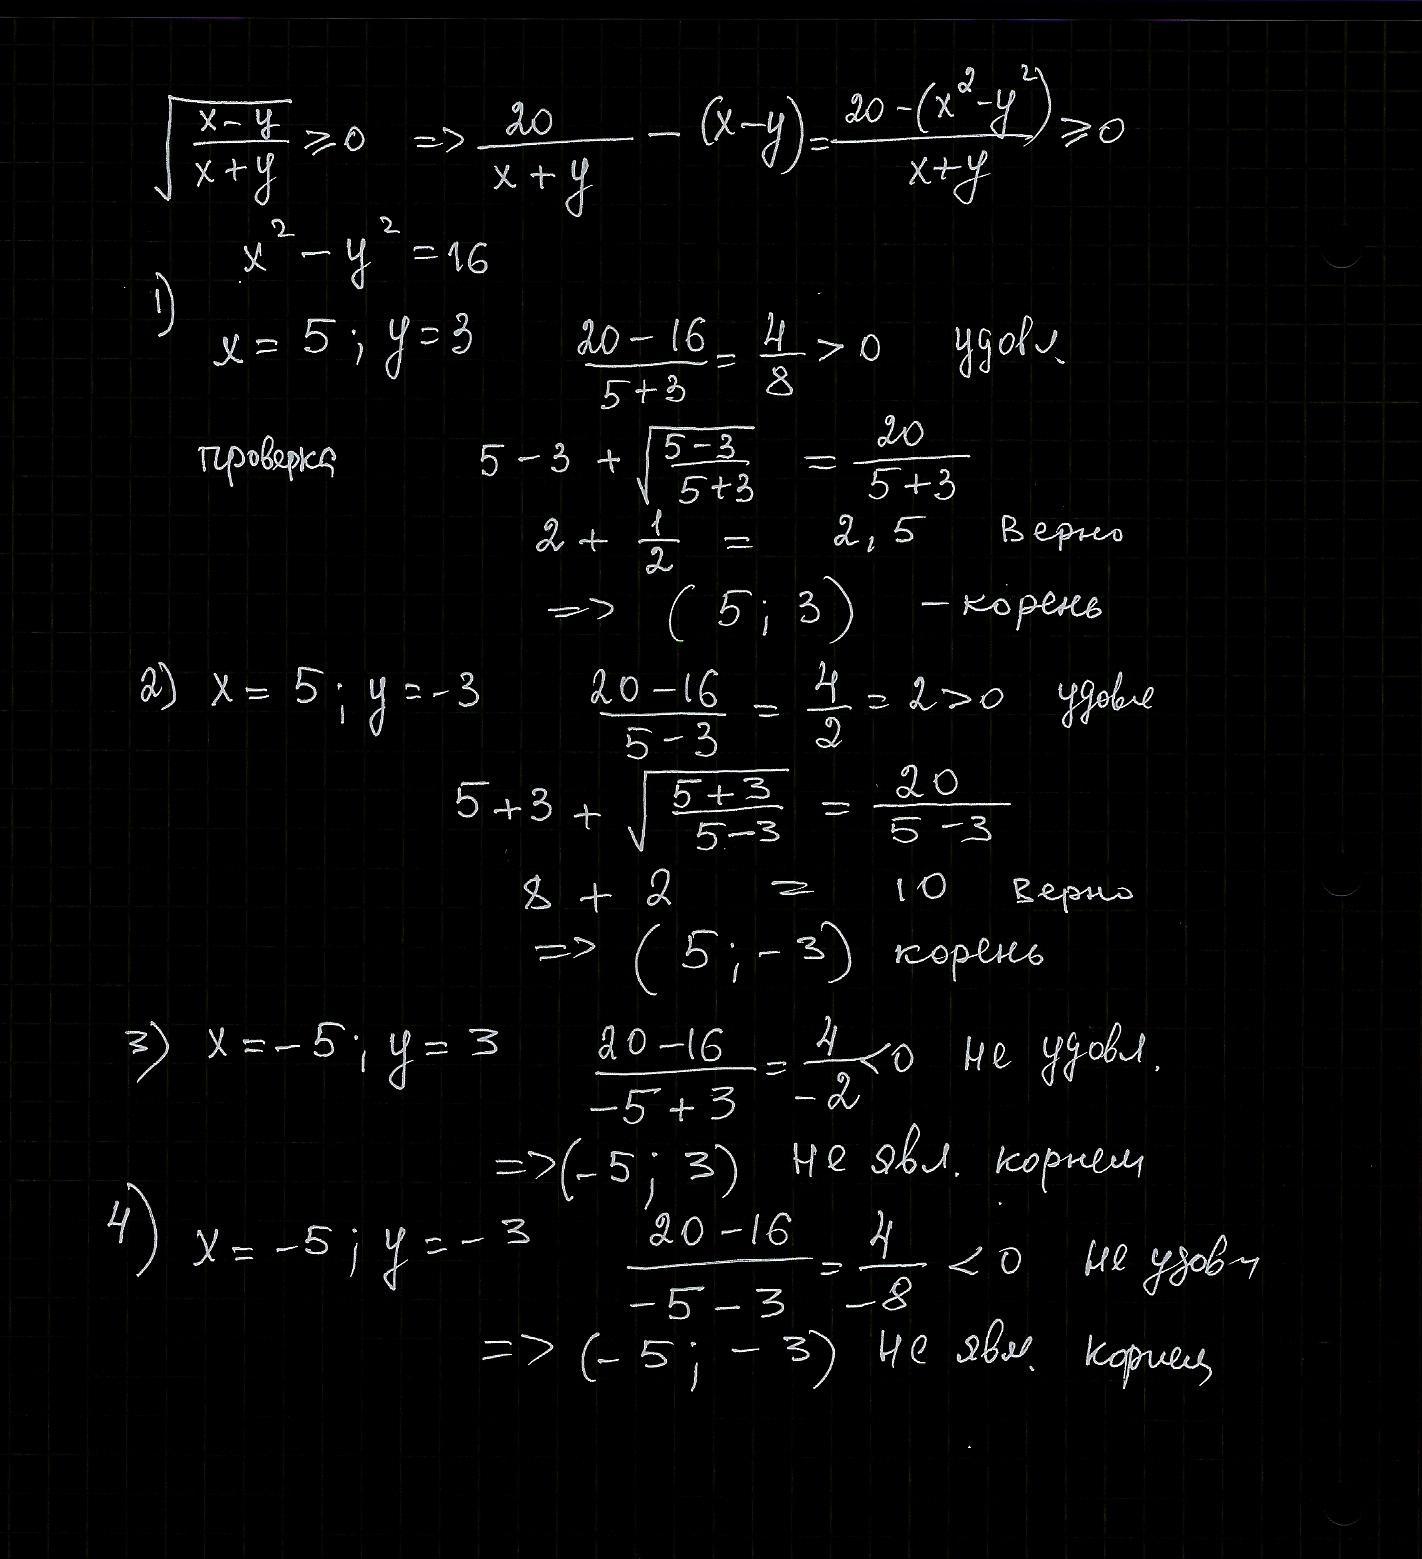 √((x-y)/(x+y)) ≥ 0 => 20/(x+y) - (x-y) = (20-(x²-y²))/(x+y) ≥ 0
x² - y² = 16
1) x = 5 ; y = 3 (20-16)/(5+3) = 4/8 > 0 удовл.
проверка 5-3 + √((5-3)/(5+3)) = 20/(5+3)
2 + 1/2 = 2,5 Верно
=> (5; 3) - корень
2) x = 5 ; y = -3 (20-16)/(5-3) = 4/2 = 2 > 0 удовл
5+3 + √((5+3)/(5-3)) = 20/(5-3)
8 + 2 = 10 верно
=> (5 ; -3) корень
3) x = -5 ; y = 3 (20-16)/(-5+3) = 4/-2 < 0 не удовл.
=> (-5 ; 3) не явл. корнем
4) x = -5 ; y = -3 (20-16)/(-5-3) = 4/-8 < 0 не удовл
=> (-5 ; -3) не явл. корнем